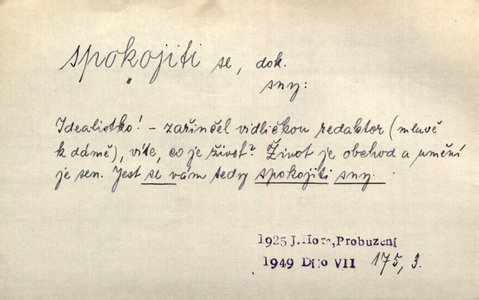 spokojiti se, dok.
sny:
Idealistko! - zařinčel vidličkou redaktor (mluvě
k dámě), víte, co je život? Život je obchod a umění
je sen. Jest se vám tedy spokojiti sny.
1925 J.Hora, Probuzení
1949 Dílo VII 175, 3.